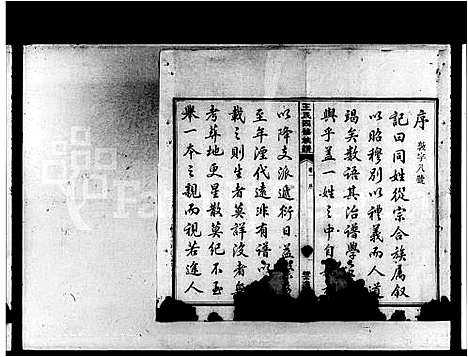 序
敦字八號
記曰同姓從宗合族屬叙
以昭穆別以禮義而人道
竭矣數語其治譜學
與乎蓋一姓之中自
王氏四修族譜
卷一 序
以降支派遞衍日益
至年湮代遠非有譜以
載之則生者莫詳沒者
考葬地更星散莫紀不至
舉一本之親而視若途人